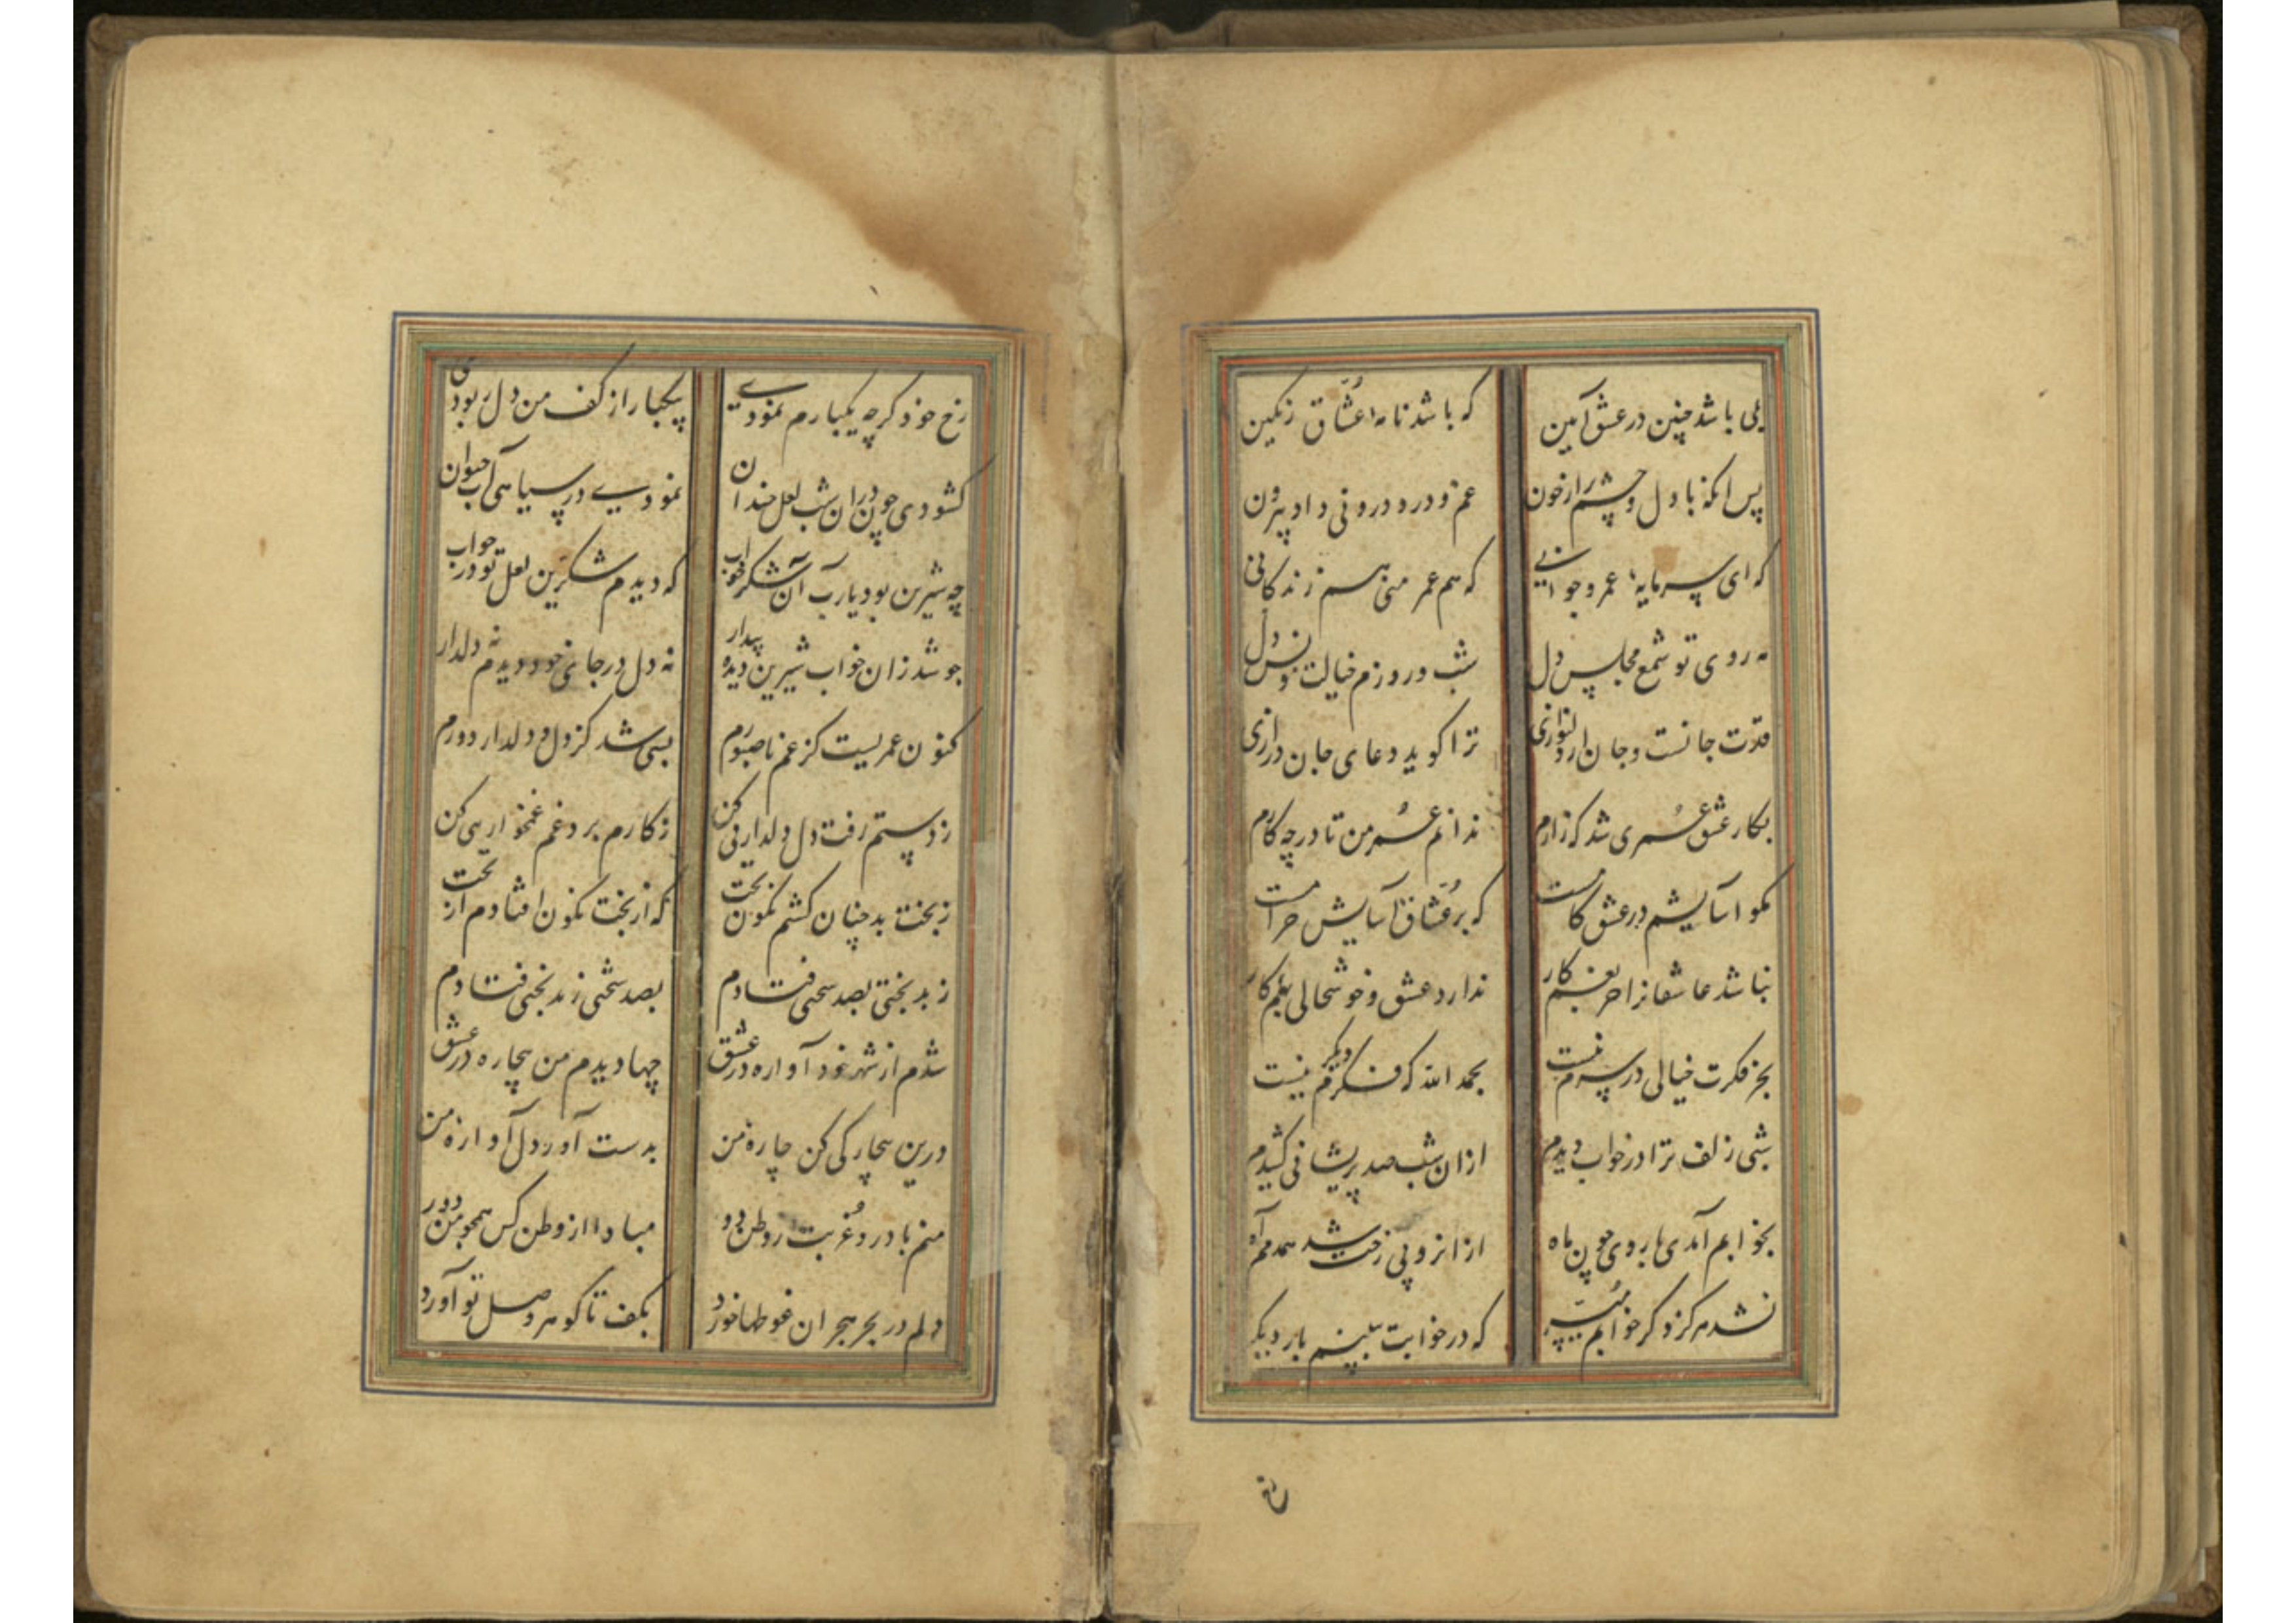 بلی باشد چنین در عشق آیین که باشد نامه عشاق رنکین
پس انکه با دل و چشم پر از خون غم و درد درونی داد بیرون
که ای سرمایه عمر و جوانی که هم عمر منی هم زندکانی
مه روی تو شمع مجلس دل شب و روزم خیالت مونس دل
قدت جانست و جان را دلنوازی ترا کوید دعای جان درازی
بکار عشق عمری شد که زارم ندانم عمر من تا در چه کارم
مکو آسایشم در عشق کامست که بر عشاق آسایش حرامست
نباشد عاشقانرا جز بغم کار ندارد عشق و خوشحالی بهم کار
بجز فکرت خیالی در سرم نیست بحمد الله که فکر دیکرم نیست
شبی زلف ترا در خواب دیدم ازان شب صد پریشانی کشیدم
بخوابم آمدی با روی چون ماه ازانرو بی رخت شد همدمم آه
نشد هرکز دکر خوابم میسر که در خوابت ببینم بار دیکر
رخ خود کرچه یکبارم نمودی بیکبار از کف من دل ربودی
کشودی چون دران شب لعل خندان نمودی در سیاهی آب حیوان
چه شیرین بود یارب آن شکرخواب که دیدم شکرین لعل تو در خواب
چو شد زان خواب شیرین دیده بیدار نه دل در جای خود دیدم نه دلدار
کنون عمریست کز غم ناصبورم بسی شد کز دل و دلدار دورم
ز دستم رفت دل دلداریی کن ز کارم برد غم غمخواریی کن
ز بخت بد چنان کشتم نکون بخت که از بخت نکون افتادم از تخت
ز بدبختی بصد سختی فتادم بصد سختی ز بدبختی فتادم
شدم از شهر خود آواره در عشق چها دیدم من بیچاره در عشق
درین بیچارکی کن چاره من بدست آور دل آواره من
منم با درد غربت از وطن دور مبادا از وطن کس همچو من دور
دلم در بحر هجران غوطها خورد بکف تا کوهر وصل تو آورد